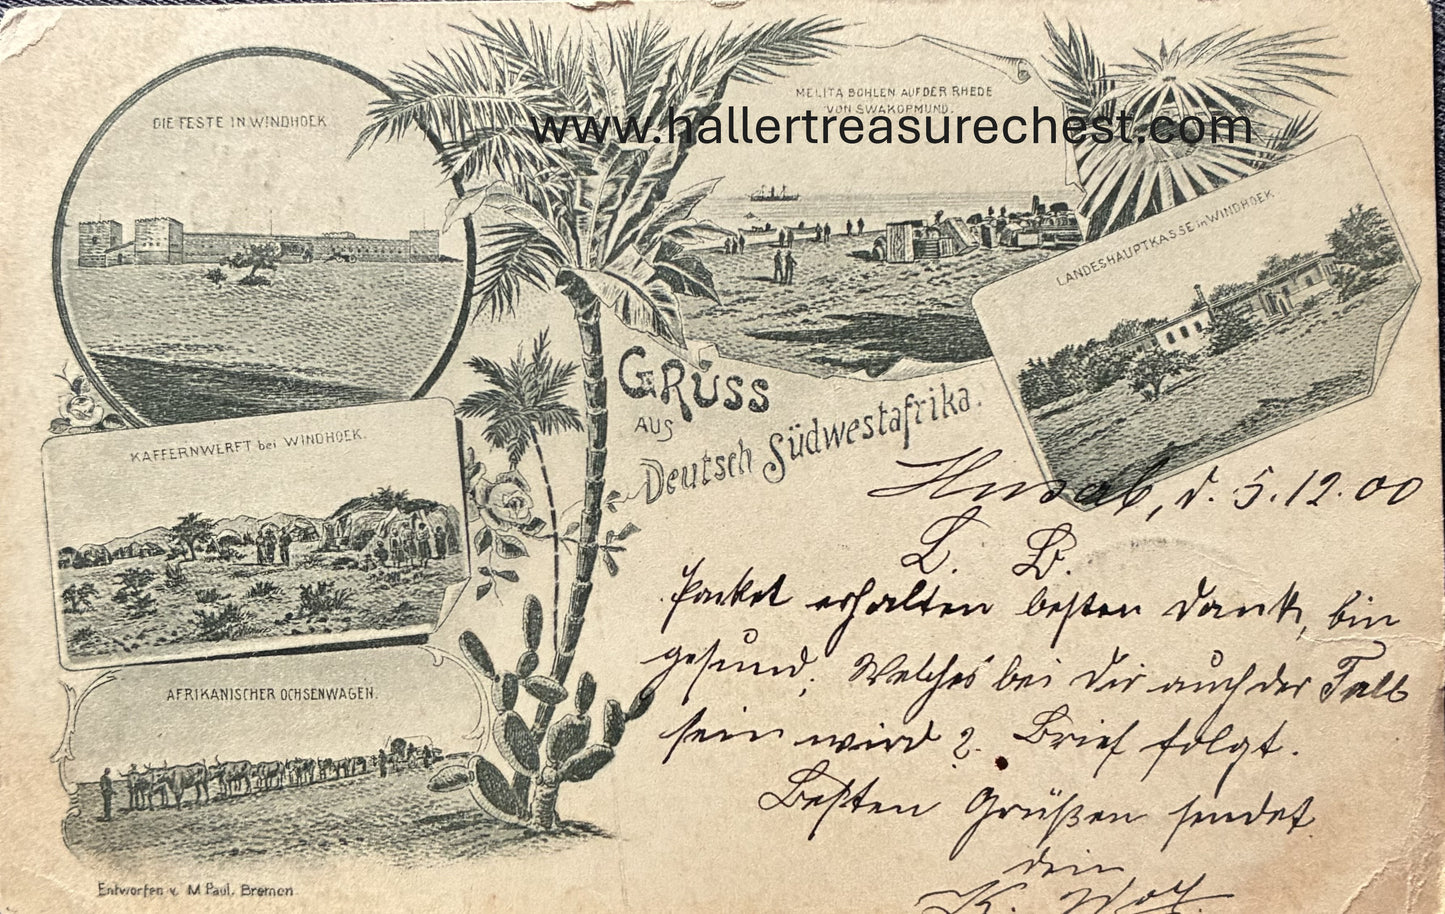 DIE FESTE IN WINDHOEK
MELITA BOHLEN AUF DER RHEDE
VON SWAKOPMUND.
www.hallertreasurechest.com
LANDESHAUPTKASSE in WINDHOEK
GRUSS
AUS
Deutsch Südwestafrika.
KAFFERNWERFT bei WINDHOEK.
AFRIKANISCHER OCHSENWAGEN.
Entworfen v. M Paul, Bremen.
Husab, d. 5.12.00
L. B.
Packet erhalten besten Dank, bin
gesund. Welches bei Dir auch der Fall
sein wird ? Brief folgt.
Besten Grüßen sendet
dein
K.